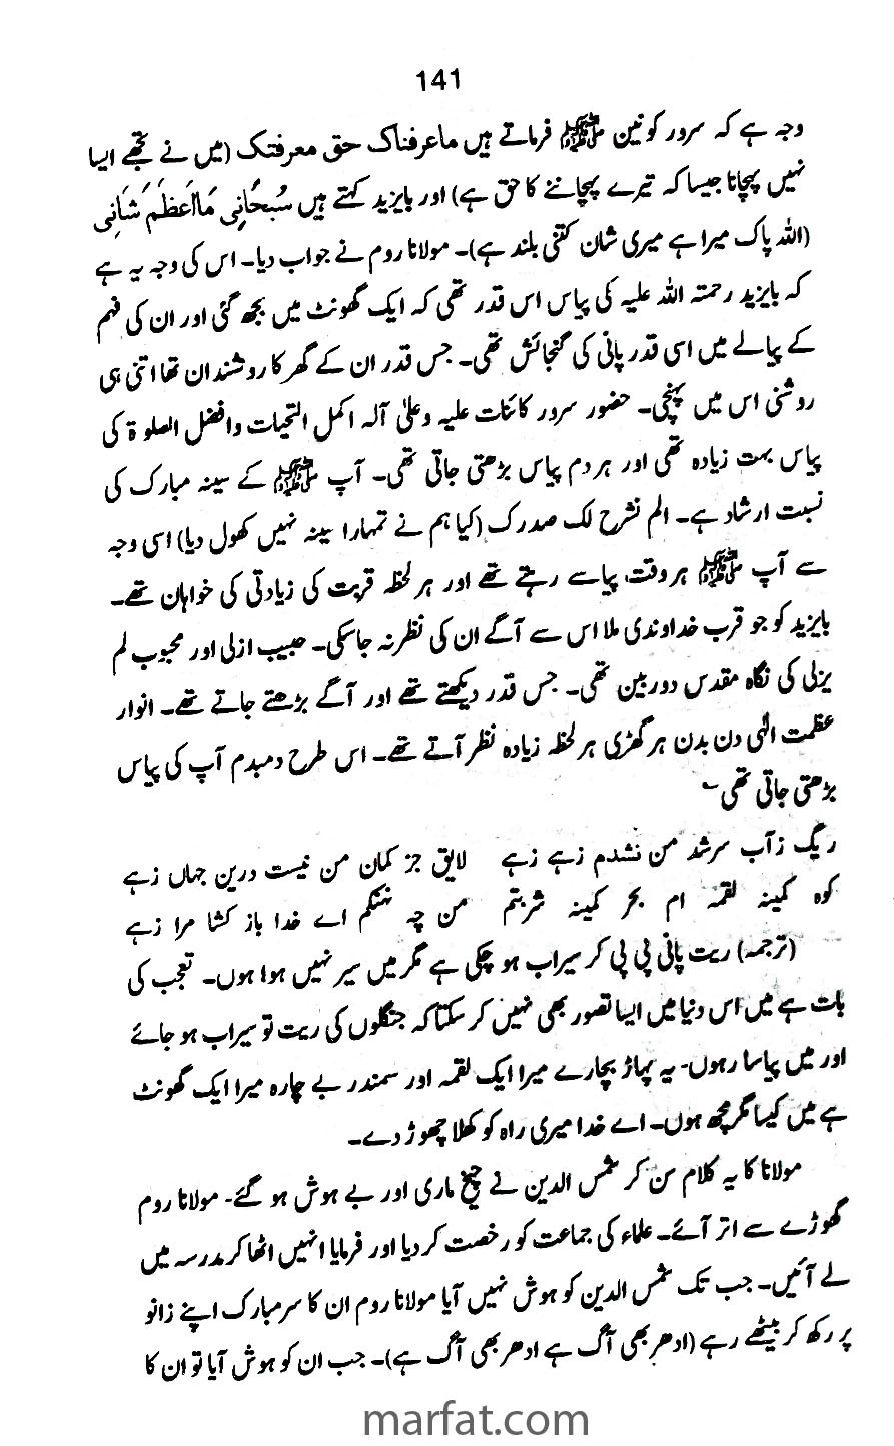 141
وجہ ہے کہ سرور کونین ﷺ فرماتے ہیں ماعرفناک حق معرفتک (میں نے تجھے ایسا
نہیں پہچانا جیسا کہ تیرے پہچاننے کا حق ہے) اور بایزید کہتے ہیں سُبحَانِی مَااَعظَمَ شَانِی
(اللہ پاک میرا ہے میری شان کتنی بلند ہے)۔ مولانا روم نے جواب دیا۔ اس کی وجہ یہ ہے
کہ بایزید رحمتہ اللہ علیہ کی پیاس اس قدر تھی کہ ایک گھونٹ میں بجھ گئی اور ان کی فہم
کے پیالے میں اسی قدر پانی کی گنجائش تھی۔ جس قدر ان کے گھر کا روشندان تھا اتنی ہی
روشنی اس میں پہنچی۔ حضور سرور کائنات علیہ وعلیٰ آلہ اکمل التحیات وافضل الصلوۃ کی
پیاس بہت زیادہ تھی اور ہر دم پیاس بڑھتی جاتی تھی۔ آپ ﷺ کے سینہ مبارک کی
نسبت ارشاد ہے۔ الم نشرح لک صدرک (کیا ہم نے تمہارا سینہ نہیں کھول دیا) اسی وجہ
سے آپ ﷺ ہر وقت پیاسے رہتے تھے اور ہر لحظہ قربت کی زیادتی کی خواہان تھے۔
بایزید کو جو قرب خداوندی ملا اس سے آگے ان کی نظر نہ جا سکی۔ حبیب ازلی اور محبوب لم
یزلی کی نگاہ مقدس دور بین تھی۔ جس قدر دیکھتے تھے اور آگے بڑھتے جاتے تھے۔ انوار
عظمت الٰہی دن بدن ہر گھڑی ہر لحظہ زیادہ نظر آتے تھے۔ اس طرح دمبدم آپ کی پیاس
بڑھتی جاتی تھی؂
ریگ ز آب سر شد من نشدم زہے زہے لایق جز کمان من نیست درین جہاں زہے
کوہ کمینہ لقمۂ ام بحر کمینہ شربتم من چہ نہنگم اے خدا باز کشا مرا زہے
(ترجمہ) ریت پانی پی پی کر سیراب ہو چکی ہے مگر میں سیر نہیں ہوا ہوں۔ تعجب کی
بات ہے میں اس دنیا میں ایسا تصور بھی نہیں کر سکتا کہ جنگلوں کی ریت تو سیراب ہو جائے
اور میں پیاسا رہوں۔ یہ پہاڑ بچارے میرا ایک لقمہ اور سمندر بے چارہ میرا ایک گھونٹ
ہے میں کیسا مگر مچھ ہوں۔ اے خدا میری راہ کو کھلا چھوڑ دے۔
مولانا کا یہ کلام سن کر شمس الدین نے چیخ ماری اور بے ہوش ہو گئے۔ مولانا روم
گھوڑے سے اتر آئے۔ علماء کی جماعت کو رخصت کر دیا اور فرمایا انہیں اٹھا کر مدرسہ میں
لے آئیں۔ جب تک شمس الدین کو ہوش نہیں آیا مولانا روم ان کا سر مبارک اپنے زانو
پر رکھ کر بیٹھے رہے (ادھر بھی آگ ہے ادھر بھی آگ ہے)۔ جب ان کو ہوش آیا تو ان کا
marfat.com